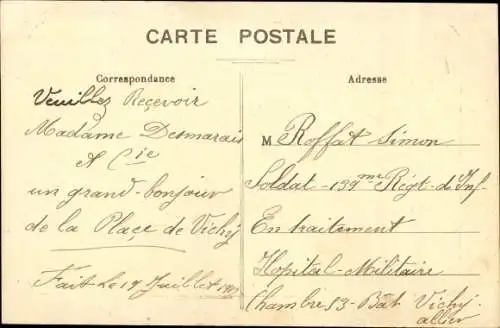 CARTE POSTALE
Correspondance
Veuillez Recevoir
Madame Desmarais
& Cie
un grand-bonjour
de la Plaçe de Vichy
Fait le 19 Juillet
Adresse
M Roffat Simon
Soldat-139me Régt-d'Inf
En traitement
Hopital-Militaire
Chambre 53-Bât Vichy
allier